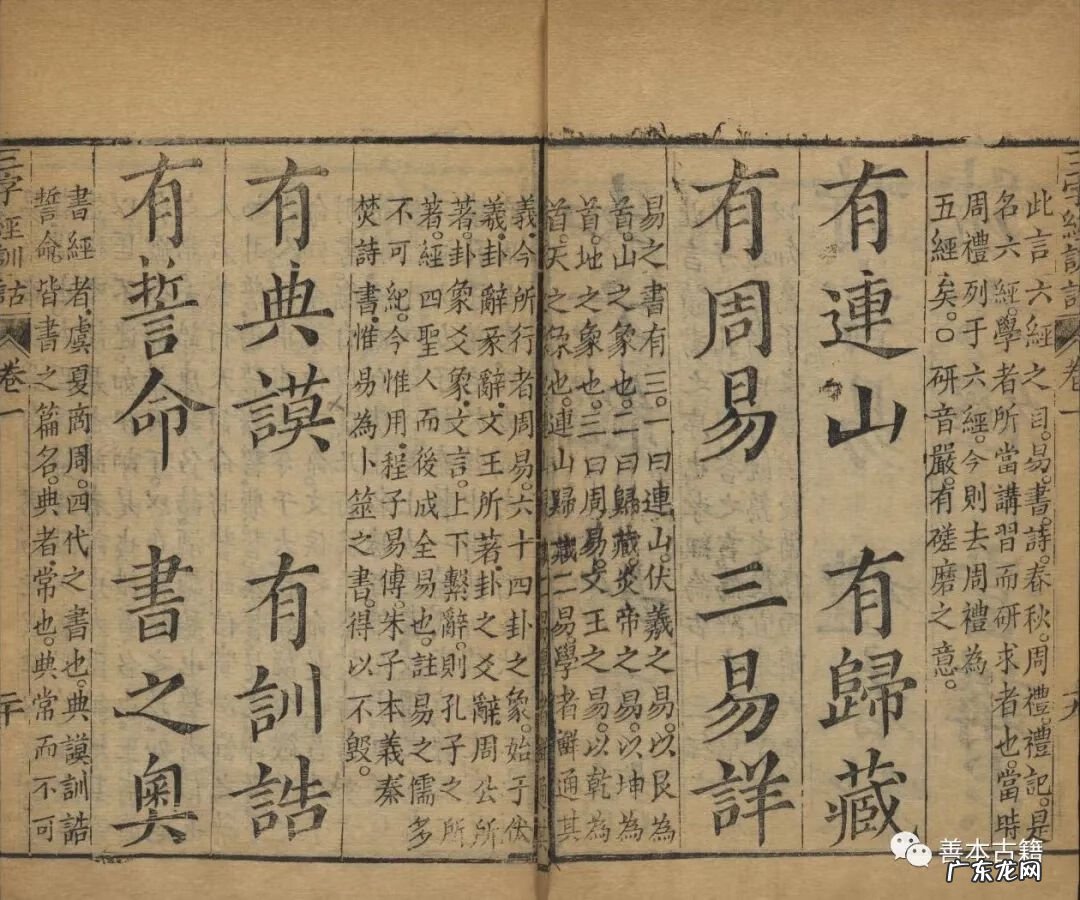 三字經訓詁 卷一
此言六經之目。易。書。詩。春秋。周禮。禮記。是
名六經。學者所當講習而研求者也。當時
周禮列于六經。今則去周禮為
五經矣。○研音嚴。有磋磨之意。
有連山 有歸藏
有周易 三易詳
易之書有三。一曰連山。伏羲之易。以艮為
首。山之象也。二曰歸藏。炎帝之易。以坤為
首。地之象也。三曰周易。文王之易。以乾為
首。天之象也。連山歸藏二易。學者鮮通其
義。今所行者周易。六十四卦之象。始于伏
羲。卦辭彖辭。文王所著。卦之爻辭周公所
著。卦象爻象。文言。上下繫辭。則孔子之所
著。經四聖人而後成全易也。註易之儒多
不可紀。今惟用。程子易傳。朱子本義秦
焚詩書。惟易為卜筮之書。得以不毀。
有典謨 有訓誥
有誓命 書之奧
書經者。虞夏商周。四代之書也。典謨訓誥
誓命。皆書之篇名。典者。常也。典常而不可
三字經訓詁 卷一
善本古籍
广东龙网